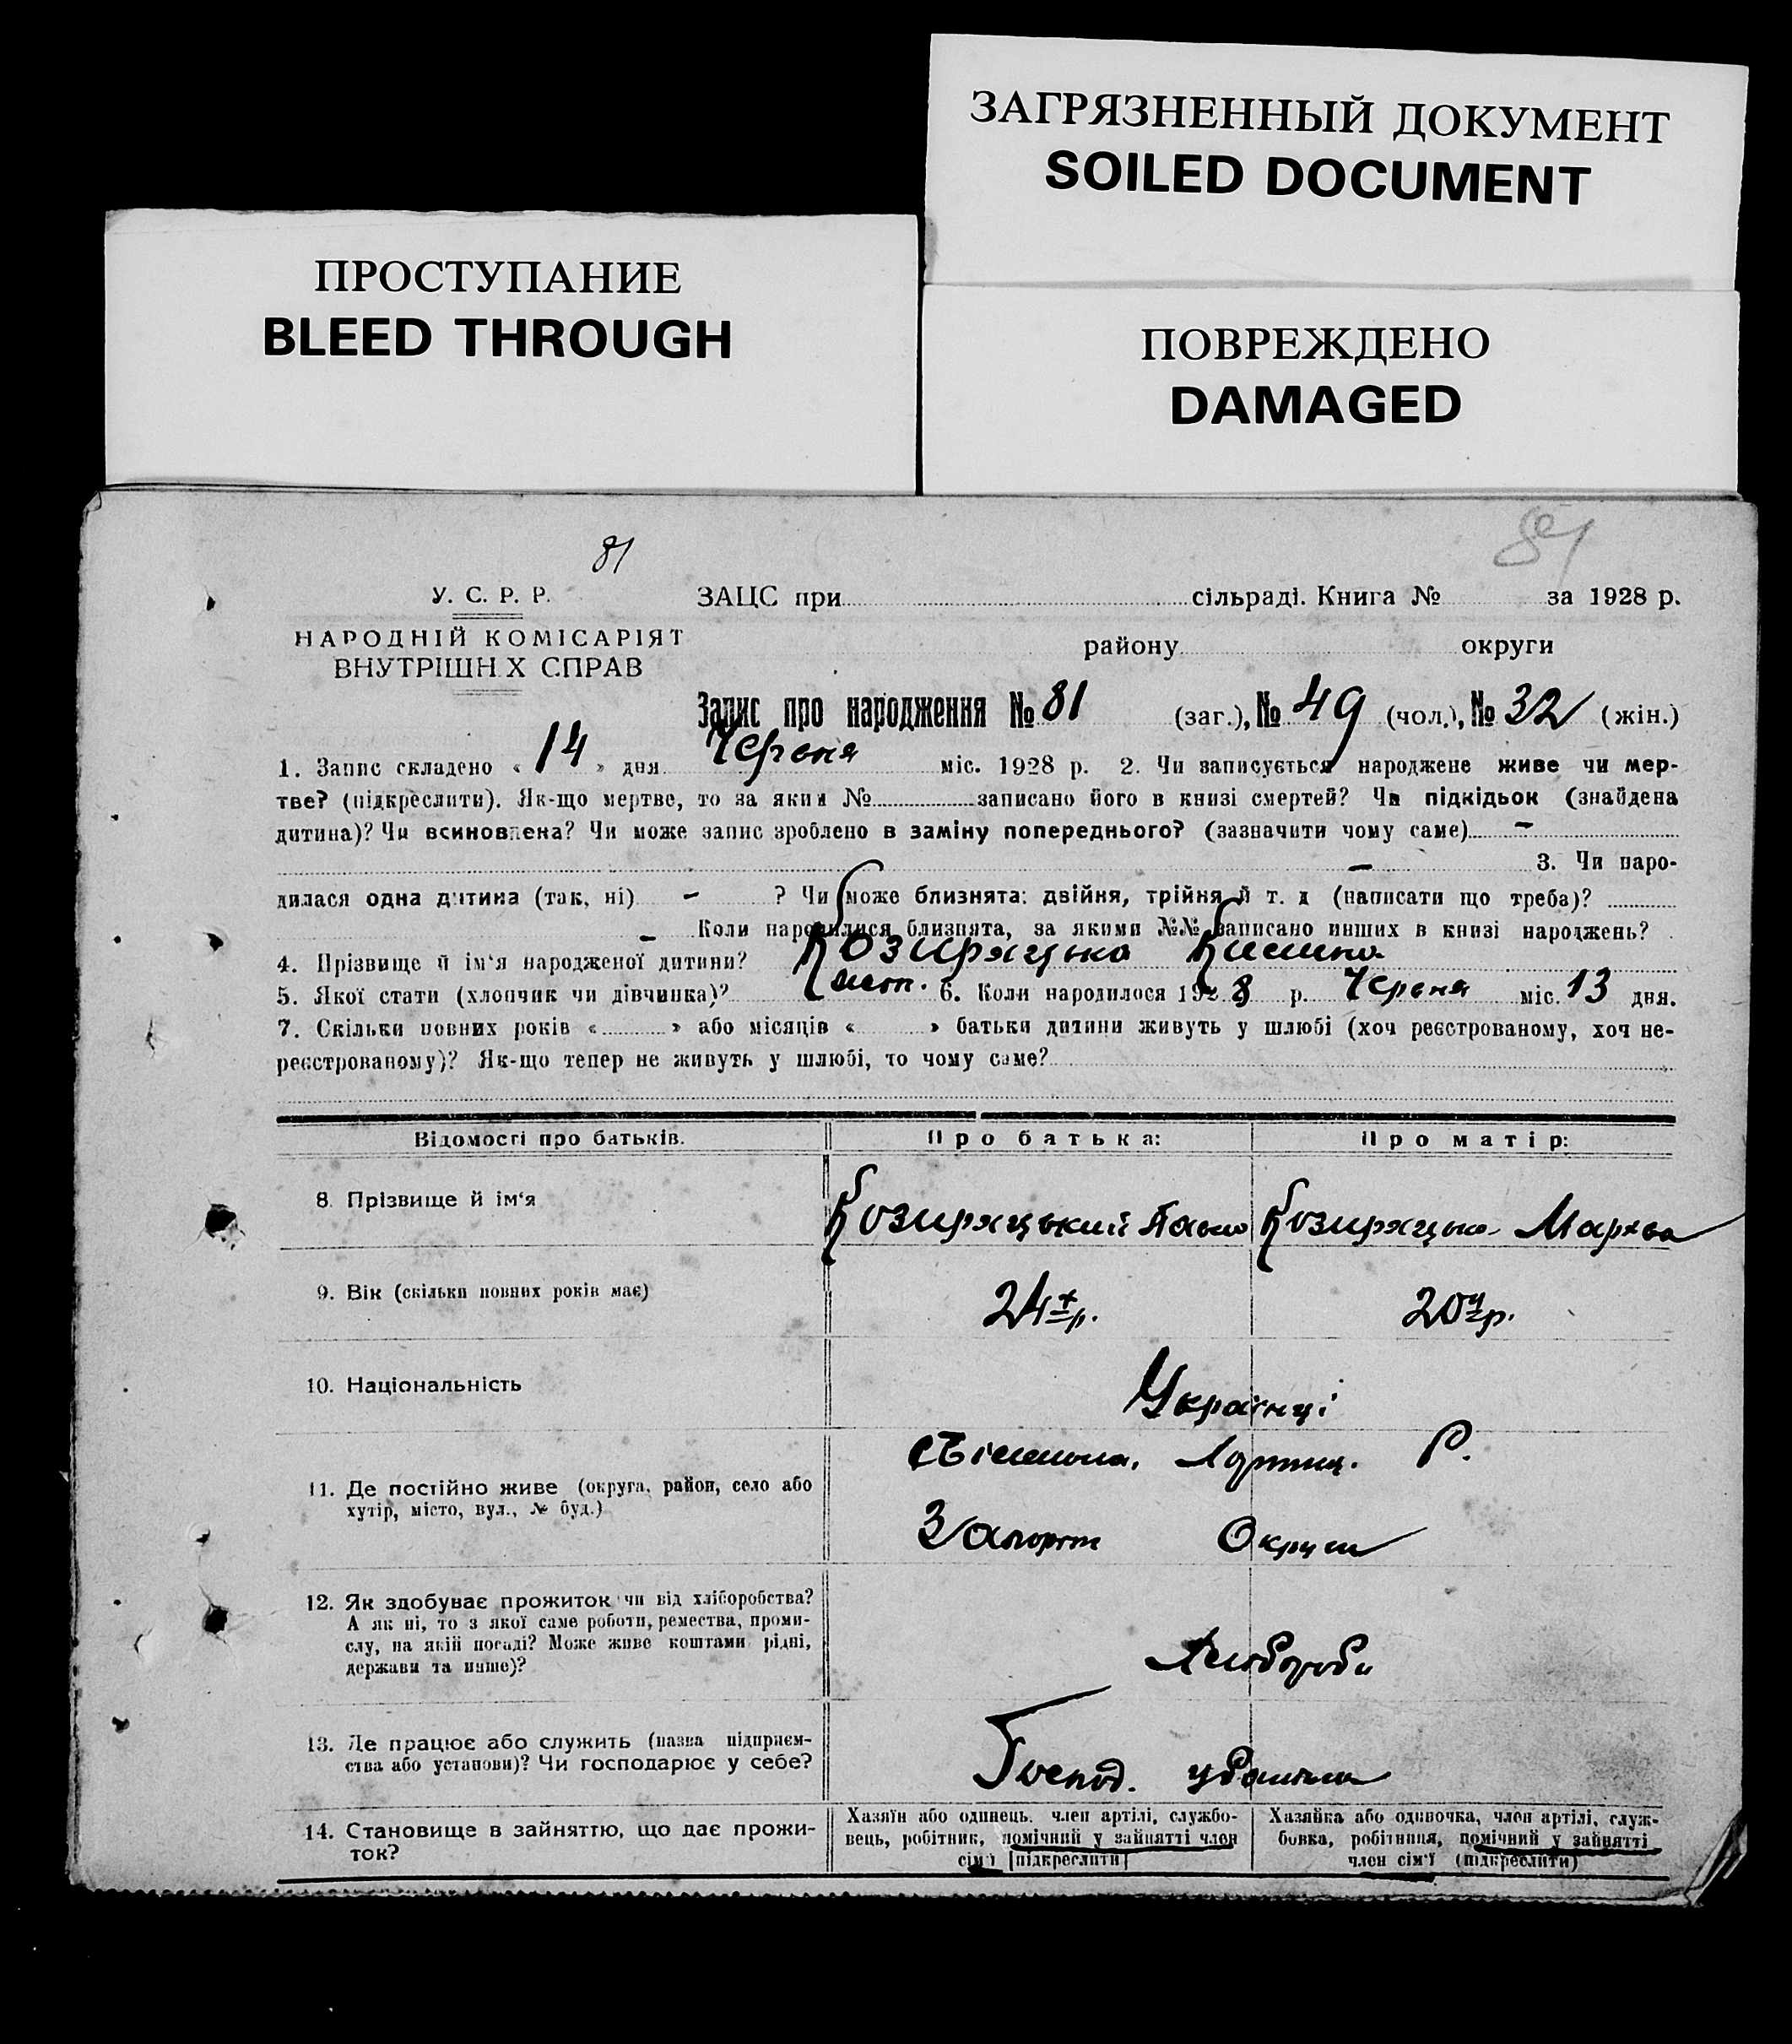 ЗАГРЯЗНЕННЫЙ ДОКУМЕНТ
SOILED DOCUMENT
ПРОСТУПАНИЕ
BLEED THROUGH
ПОВРЕЖДЕНО
DAMAGED
81
У. С. Р. Р.
НАРОДНІЙ КОМІСАРІЯТ
ВНУТРІШН Х СПРАВ
ЗАЦС при сільраді. Книга № за 1928 р.
району округи
Запис про народження № 81 (заг.), № 49 (чол.), № 32 (жін.)
1. Запис складено « 14 » дня Червня міс. 1928 р. 2. Чи записується народжене живе чи мер-
тве? (підкреслити). Як-що мертве, то за яким № записано його в книзі смертей? Чи підкідьок (знайдена
дитина)? Чи всиновлена? Чи може запис зроблено в заміну попереднього? (зазначити чому саме) -
- 3. Чи наро-
дилася одна дитина (так, ні) - ? Чи може близнята: двійня, трійня й т. д (написати що треба)?
- Коли народилися близнята, за якими №№ записано инших в книзі народжень?
4. Прізвище й ім'я народженої дитини? Козиряцька
5. Якої стати (хлопчик чи дівчинка)? 6. Коли народилося 1928 р. Червня міс. 13 дня.
7. Скільки повних років « » або місяців « » батьки дитини живуть у шлюбі (хоч реєстрованому, хоч не-
реєстрованому)? Як-що тепер не живуть у шлюбі, то чому саме?
Відомості про батьків. Про батька: Про матір:
8. Прізвище й ім'я Козиряцький Козиряцька
9. Вік (скільки повних років має) 24 р. 20 р.
10. Національність Українці
11. Де постійно живе (округа, район, село або
хутір, місто, вул., № буд.)
Р.
Запорож Округи
12. Як здобуває прожиток чи від хліборобства?
А як ні, то з якої саме роботи, ремества, проми-
слу, на якій посаді? Може живе коштами рідні,
держави та инше)?
Хлібороби
13. Де працює або служить (назва підприєм-
ства або установи)? Чи господарює у себе?
Господ. у батька
14. Становище в зайняттю, що дає прожи-
ток?
Хазяїн або одинець, член артілі, службо-
вець, робітник, помічний у зайнятті член
сім'ї (підкреслити)
Хазяйка або одиночка, член артілі, служ-
бовка, робітниця, помічний у зайнятті
член сім'ї (підкреслити)